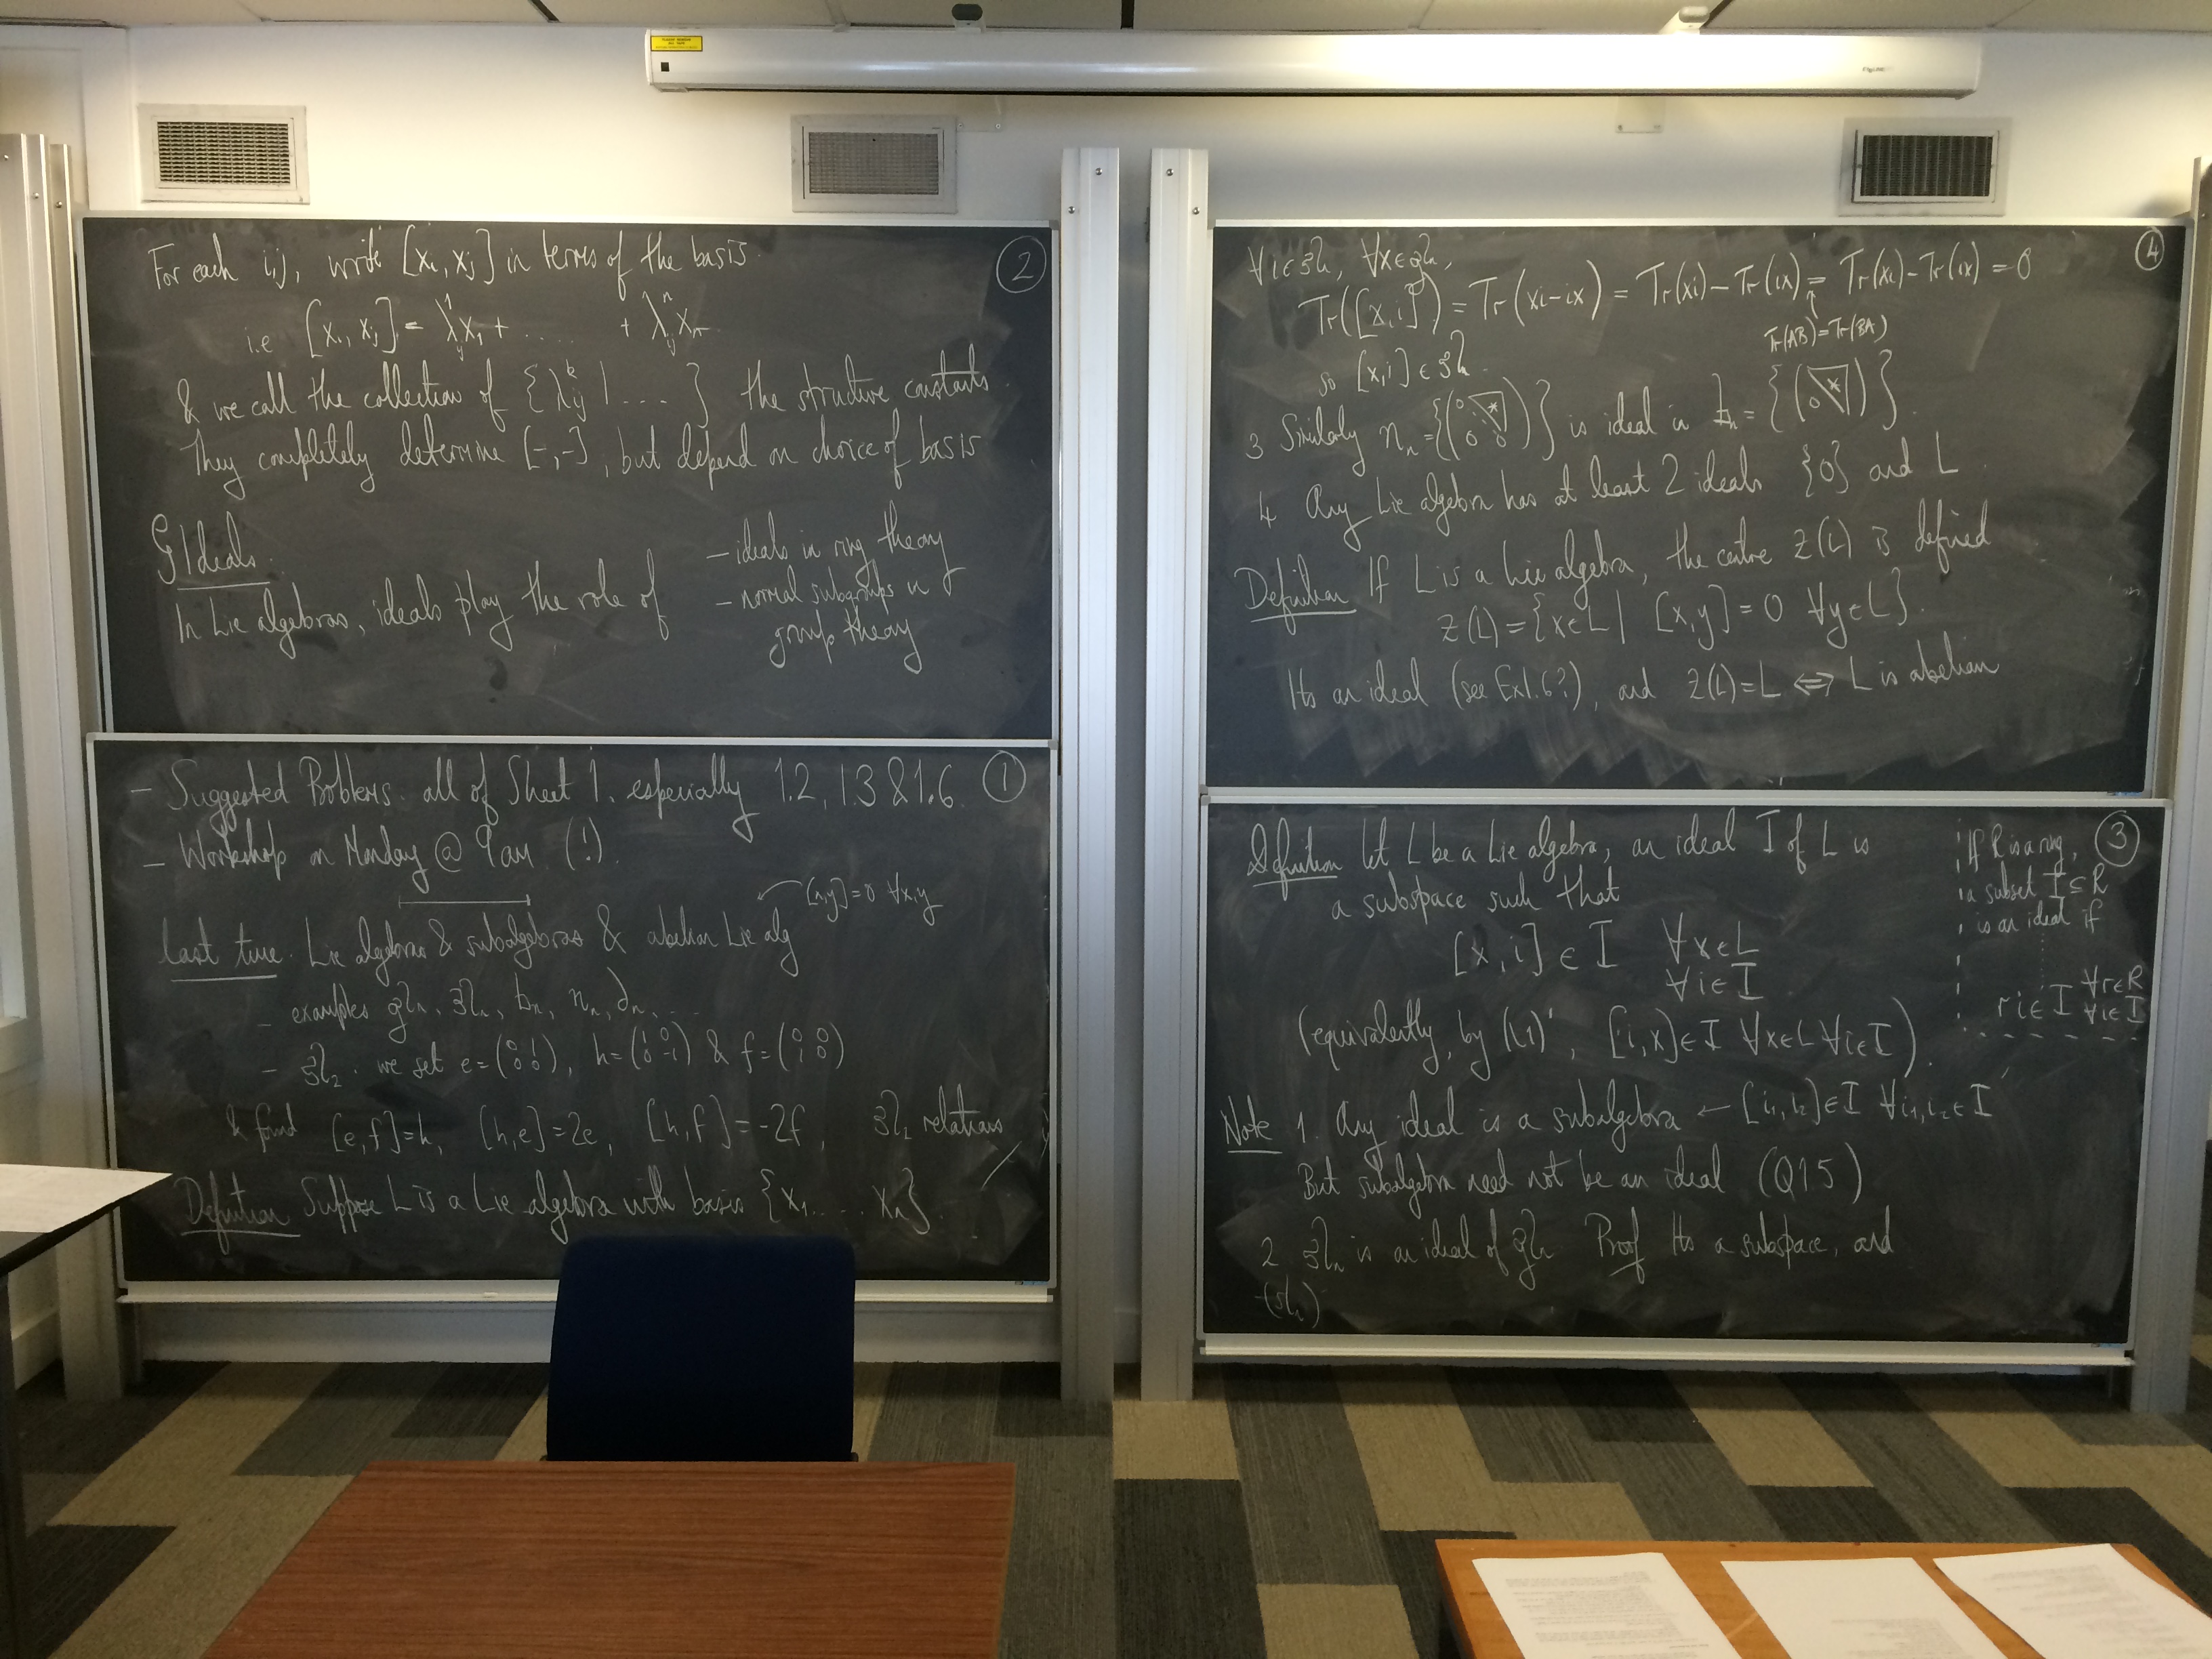 ①
- Suggested Problems. all of Sheet 1. especially 1.2, 1.3 & 1.6.
- Workshop on Monday @ 9am. (!).
Last time. Lie algebras & subalgebras & abelian Lie alg ← [x,y]=0 ∀x,y
- examples gl_n, sl_n, b_n, n_n, d_n, ...
- sl_2. we set e=(0 1; 0 0), h=(1 0; 0 -1) & f=(0 0; 1 0)
& found [e,f]=h, [h,e]=2e, [h,f]=-2f, sl_2 relations
Definition Suppose L is a Lie algebra with basis {x_1 .... x_n}.
②
For each i,j, write [x_i, x_j] in terms of the basis.
i.e [x_i, x_j] = λ_{ij}^1 x_1 + ..... + λ_{ij}^n x_n
& we call the collection of {λ_{ij}^k | ....} the structure constants.
They completely determine [-,-], but depend on choice of basis
Ideals.
In Lie algebras, ideals play the role of
- ideals in ring theory
- normal subgroups in
group theory
③
Definition Let L be a Lie algebra, an ideal I of L is
a subspace such that
[x,i] ∈ I ∀x∈L
∀i∈I
(equivalently, by (L1)', [i,x]∈I ∀x∈L ∀i∈I).
If R is a ring,
a subset I ⊆ R
is an ideal if
ri∈I ∀r∈R
∀i∈I
Note 1. Any ideal is a subalgebra ← [i_1,i_2]∈I ∀i_1,i_2∈I
But subalgebra need not be an ideal (Q1.5)
2 sl_n is an ideal of gl_n Proof Its a subspace, and
(sl_n)
④
∀i∈sl_n, ∀x∈gl_n,
Tr([x,i]) = Tr(xi-ix) = Tr(xi)-Tr(ix) = Tr(xi)-Tr(ix) = 0
↑
Tr(AB)=Tr(BA)
so [x,i] ∈ sl_n.
3 Similarly n_n = {(0 * 0 0)} is ideal in b_n = {(* 0)}.
4 Any Lie algebra has at least 2 ideals {0} and L.
Definition If L is a Lie algebra, the centre Z(L) is defined
Z(L)={x∈L | [x,y]=0 ∀y∈L}.
Its an ideal (see Ex1.6?), and Z(L)=L ⟺ L is abelian